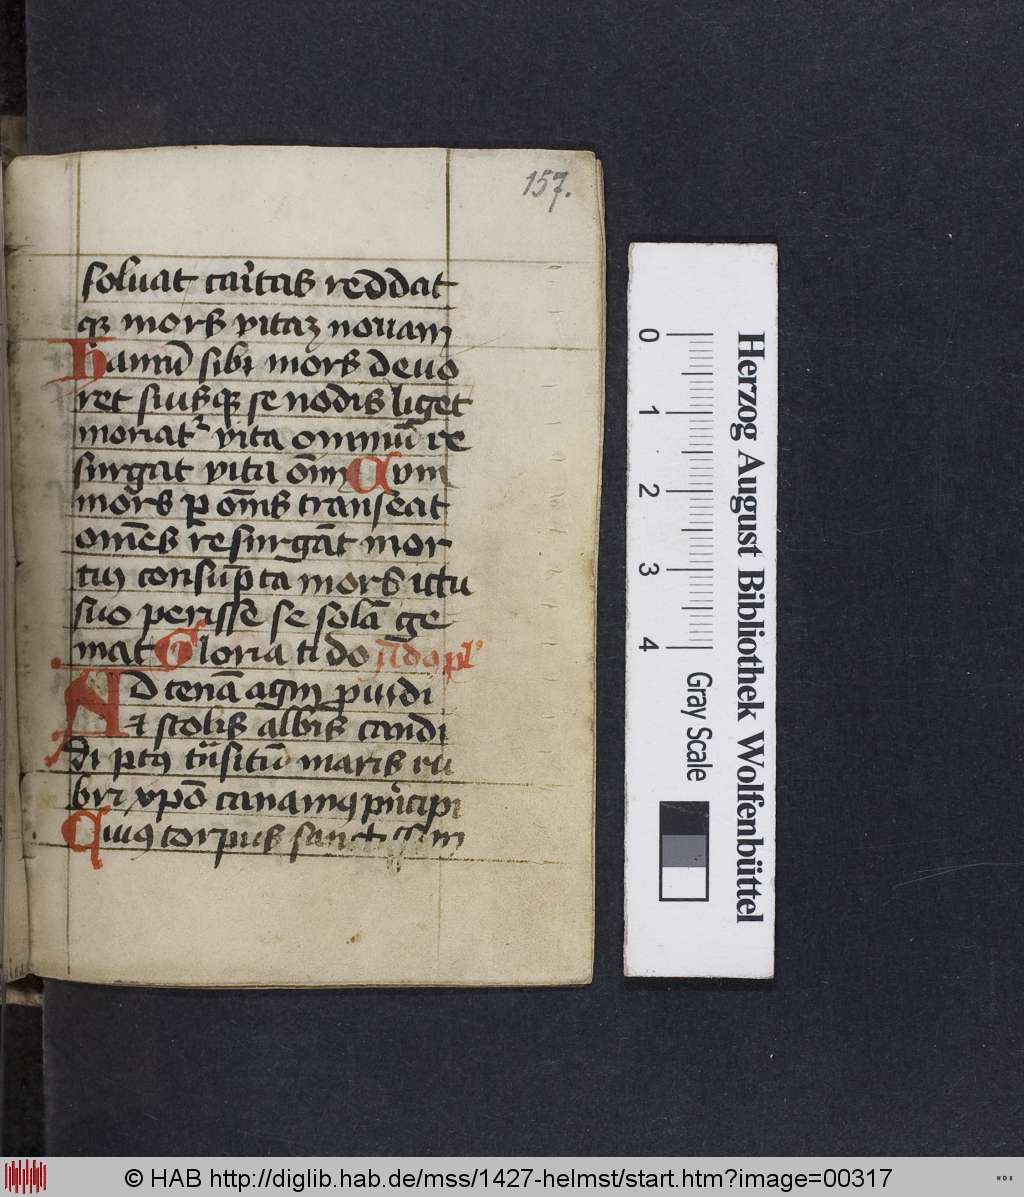 157.
soluat caritas reddat
q3 mors vitaz nouam
Hamū sibi mors deuo
ret suisq3 se nodis liget
moriat᷑ vita omniū re
surgat vita om̄i Cum
mors p om̄s transeat
om̄es resurgāt mor
tui consūpta mors ictu
suo perisse se solā ge
mat Gloria ti do
AD cenā agni prouidi
et stolis albis candi
di p9 tn̄sitū maris ru
bri xpō canamq pͥncipi
Cui9 corpus sanctissim
0
1
2
3
4
Gray Scale
Herzog August Bibliothek Wolfenbüttel
© HAB http://diglib.hab.de/mss/1427-helmst/start.htm?image=00317